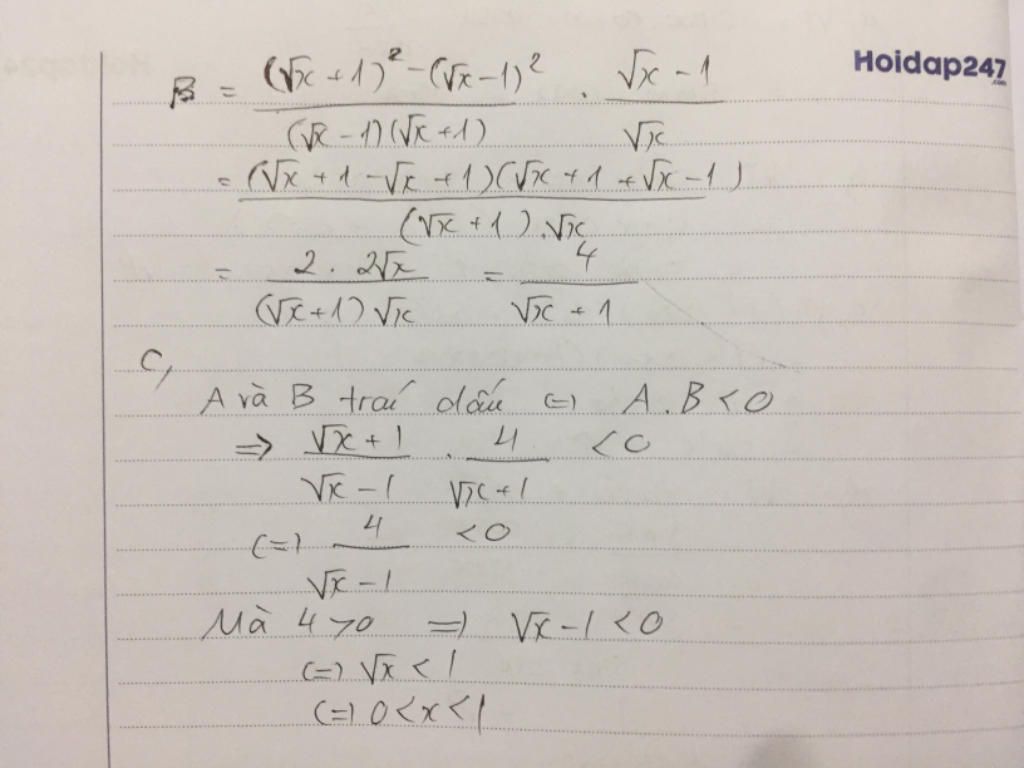 Hoidap247.com
B = (√x + 1)² - (√x - 1)² / (√x - 1)(√x + 1) . √x - 1 / √x
= (√x + 1 - √x + 1)(√x + 1 + √x - 1) / (√x + 1).√x
= 2 . 2√x / (√x + 1)√x = 4 / √x + 1
C,
A và B traí dấu (=) A.B < 0
=> √x + 1 / √x - 1 . 4 / √x + 1 < 0
(=) 4 / √x - 1 < 0
Mà 4 > 0 => √x - 1 < 0
(=) √x < 1
(=) 0 < x < 1